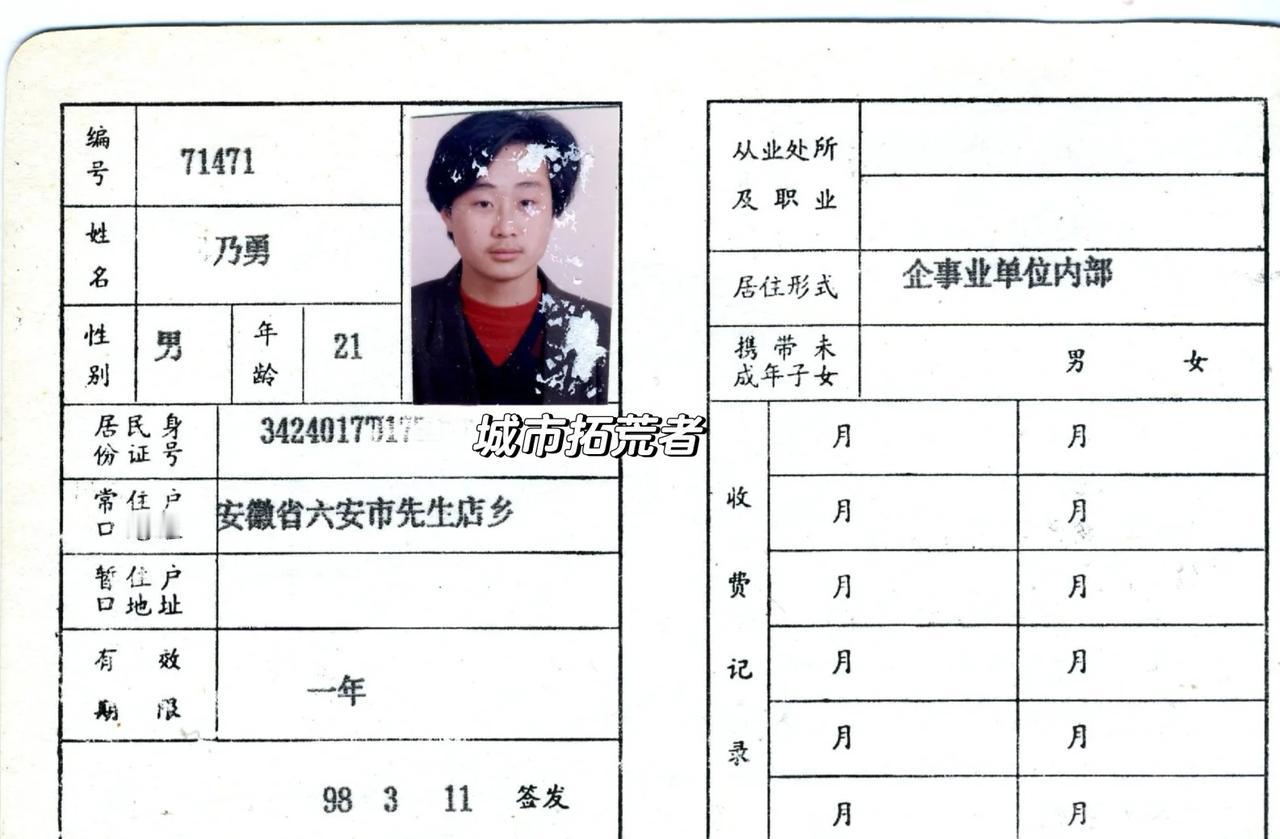 编号 71471
姓名 乃勇
性别 男 年龄 21
居民身份证号 34240177017
城市拓荒者
常住户口 安徽省六安市先生店乡
暂住户口地址
有效期限 一年
98 3 11 签发
从业处所及职业
居住形式 企事业单位内部
携带未成年子女 男 女
收费记录
月 月
月 月
月 月
月 月
月 月
月 月